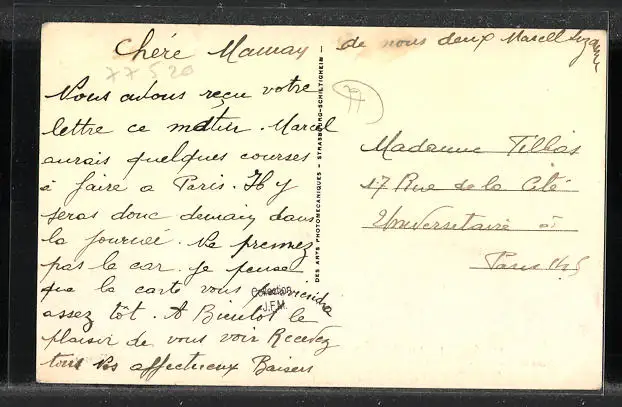 Chére Maman
77520
Nous avons reçu votre
lettre ce matin. Marcel
aurais quelques courses
à faire a Paris. Il y
seras donc demain dans
la journeé. Ne prenez
pas le car. Je pense
que la carte vous parviendra
assez tôt. A Bientôt le
plaisir de vous voir Recevez
tous nos affectueux Baisers
de nous deux Marcel Suzanne
DES ARTS PHOTOMECANIQUES - STRASBOURG-SCHILTIGHEIM -
77
Madame
17 Rue de la Cité
Universitaire à
Paris 14
Collection
J.F.M.